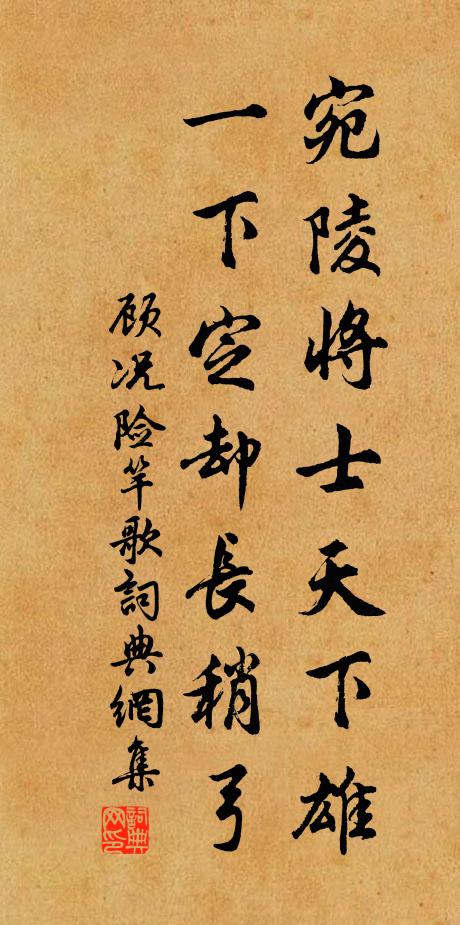 宛陵將士天下雄
一下定却長稍弓
顾况险竿歌詞典網集
詞典网印